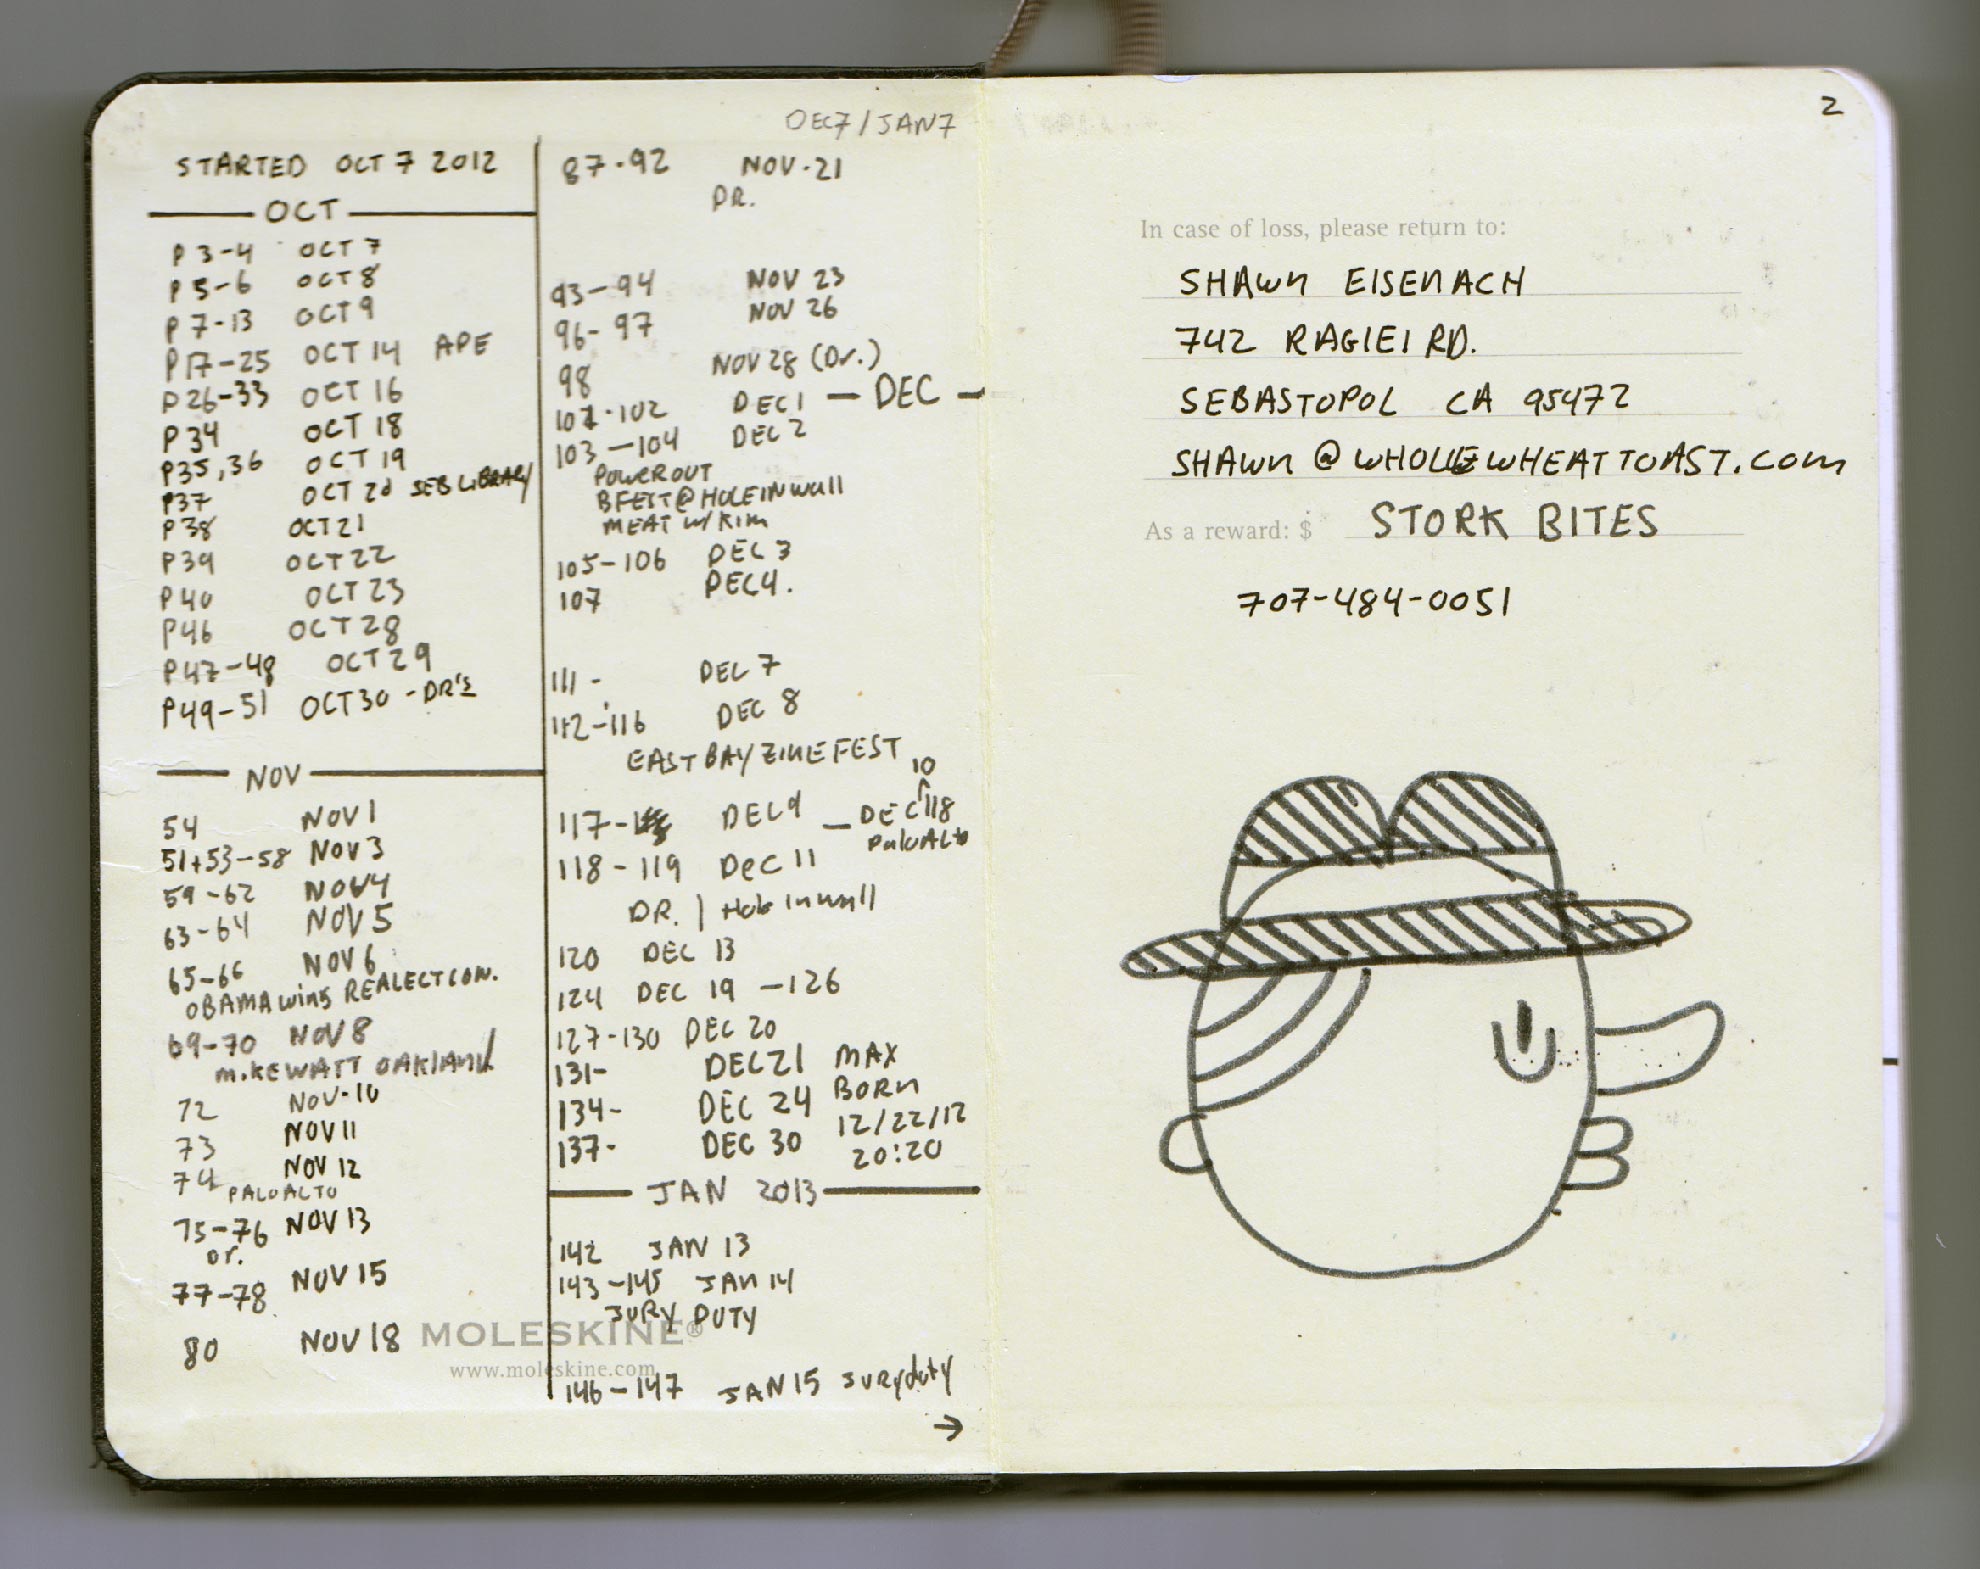 STARTED OCT 7 2012
OCT
P 3-4 OCT 7
P 5-6 OCT 8
P 7-13 OCT 9
P17-25 OCT 14 APE
P26-33 OCT 16
P34 OCT 18
P35,36 OCT 19
P37 OCT 20 SEB LIBRARY
P38 OCT 21
P39 OCT 22
P40 OCT 23
P46 OCT 28
P47-48 OCT 29
P49-51 OCT 30 - DR'S
NOV
54 NOV 1
51+53-58 NOV 3
59-62 NOV 4
63-64 NOV 5
65-66 NOV 6
OBAMA wins REALECTION.
69-70 NOV 8
M.KE WATT OAKLAND
72 NOV-10
73 NOV 11
74 NOV 12
PALO ALTO
75-76 NOV 13
Dr.
77-78 NOV 15
80 NOV 18
MOLESKINE®
www.moleskine.com
DEC7/JAN7
87-92 NOV-21
DR.
93-94 NOV 23
96-97 NOV 26
98 NOV 28 (Dr.)
101-102 DEC 1 — DEC —
103-104 DEC 2
POWER OUT
BFEST@HOLEINWall
MEAT w/ Kim
105-106 DEC 3
107 DEC4.
111- DEC 7
112-116 DEC 8
EAST BAY ZINE FEST
117- DEC 9 — DEC 10 118
PaloAlto
118-119 DEC 11
DR. | Hole in wall
120 DEC 13
124 DEC 19 -126
127-130 DEC 20
131- DEC 21 MAX
134- DEC 24 BORN
12/22/12
137- DEC 30 20:20
JAN 2013
142 JAN 13
143-145 JAN 14
JURY DUTY
146-147 JAN 15 Jury duty
→
2
In case of loss, please return to:
SHAWN EISENACH
742 RAGLEI RD.
SEBASTOPOL CA 95472
SHAWN@WHOLEWHEATTOAST.COM
As a reward: $ STORK BITES
707-484-0051